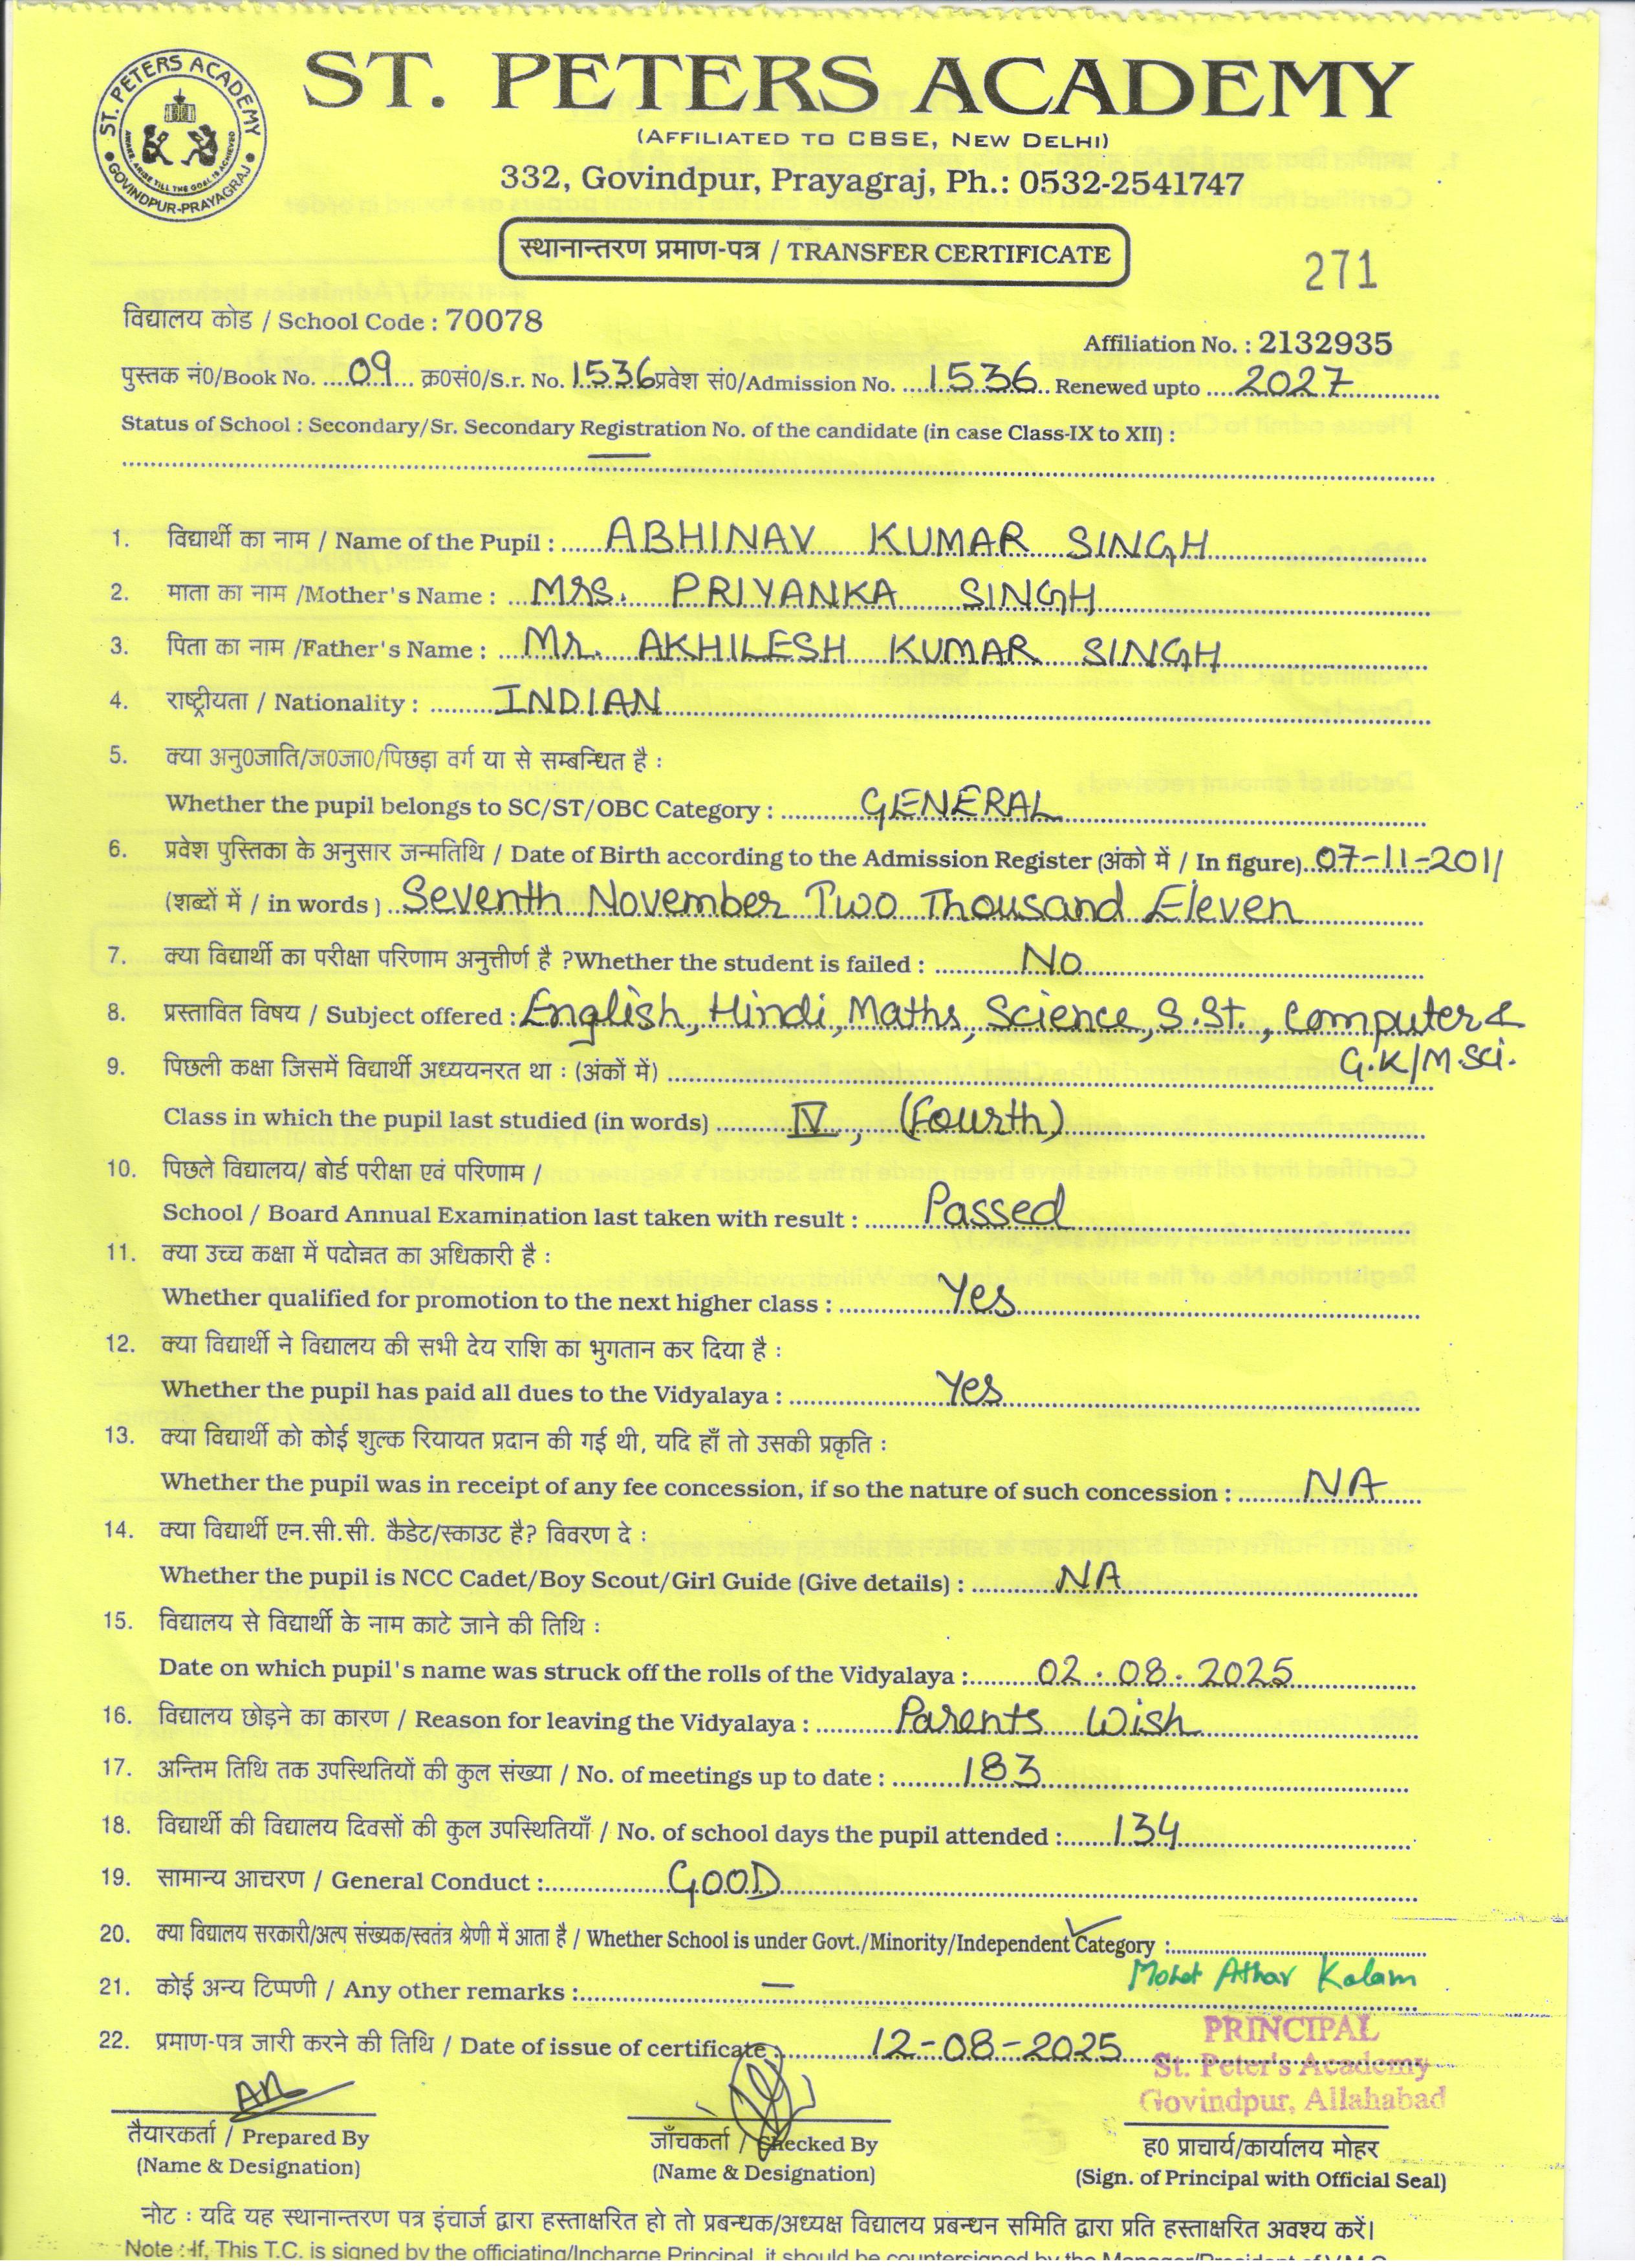 ST. PETERS ACADEMY
GOVINDPUR-PRAYAGRAJ
AWAKE, ARISE TILL THE GOAL IS ACHIEVED
ST. PETERS ACADEMY
(AFFILIATED TO CBSE, NEW DELHI)
332, Govindpur, Prayagraj, Ph.: 0532-2541747
स्थानान्तरण प्रमाण-पत्र / TRANSFER CERTIFICATE
271
विद्यालय कोड / School Code : 70078
Affiliation No. : 2132935
पुस्तक नं0/Book No. ....09... क्र0सं0/S.r. No. 1536 प्रवेश सं0/Admission No. ....1536.. Renewed upto ....2027............
Status of School : Secondary/Sr. Secondary Registration No. of the candidate (in case Class-IX to XII) :
—
1. विद्यार्थी का नाम / Name of the Pupil : ABHINAV KUMAR SINGH
2. माता का नाम /Mother's Name : Mrs. PRIYANKA SINGH
3. पिता का नाम /Father's Name : Mr. AKHILESH KUMAR SINGH
4. राष्ट्रीयता / Nationality : INDIAN
5. क्या अनु0जाति/ज0जा0/पिछड़ा वर्ग या से सम्बन्धित है :
Whether the pupil belongs to SC/ST/OBC Category : GENERAL
6. प्रवेश पुस्तिका के अनुसार जन्मतिथि / Date of Birth according to the Admission Register (अंको में / In figure) 07-11-2011
(शब्दों में / in words ) Seventh November Two Thousand Eleven
7. क्या विद्यार्थी का परीक्षा परिणाम अनुत्तीर्ण है ?Whether the student is failed : No
8. प्रस्तावित विषय / Subject offered : English, Hindi, Maths, Science, S.St., Computer &
G.K/M.Sci.
9. पिछली कक्षा जिसमें विद्यार्थी अध्ययनरत था : (अंकों में)
Class in which the pupil last studied (in words) IV, (Fourth)
10. पिछले विद्यालय/ बोर्ड परीक्षा एवं परिणाम /
School / Board Annual Examination last taken with result : Passed
11. क्या उच्च कक्षा में पदोन्नत का अधिकारी है :
Whether qualified for promotion to the next higher class : Yes
12. क्या विद्यार्थी ने विद्यालय की सभी देय राशि का भुगतान कर दिया है :
Whether the pupil has paid all dues to the Vidyalaya : Yes
13. क्या विद्यार्थी को कोई शुल्क रियायत प्रदान की गई थी, यदि हाँ तो उसकी प्रकृति :
Whether the pupil was in receipt of any fee concession, if so the nature of such concession : NA
14. क्या विद्यार्थी एन.सी.सी. कैडेट/स्काउट है? विवरण दे :
Whether the pupil is NCC Cadet/Boy Scout/Girl Guide (Give details) : NA
15. विद्यालय से विद्यार्थी के नाम काटे जाने की तिथि :
Date on which pupil's name was struck off the rolls of the Vidyalaya : 02.08.2025
16. विद्यालय छोड़ने का कारण / Reason for leaving the Vidyalaya : Parents Wish
17. अन्तिम तिथि तक उपस्थितियों की कुल संख्या / No. of meetings up to date : 183
18. विद्यार्थी की विद्यालय दिवसों की कुल उपस्थितियाँ / No. of school days the pupil attended : 134
19. सामान्य आचरण / General Conduct : GOOD
20. क्या विद्यालय सरकारी/अल्प संख्यक/स्वतंत्र श्रेणी में आता है / Whether School is under Govt./Minority/Independent ✓ Category :
Mohd Athar Kalam
21. कोई अन्य टिप्पणी / Any other remarks : —
22. प्रमाण-पत्र जारी करने की तिथि / Date of issue of certificate : 12-08-2025
PRINCIPAL
St. Peter's Academy
Govindpur, Allahabad
तैयारकर्ता / Prepared By
(Name & Designation)
जाँचकर्ता / Checked By
(Name & Designation)
ह0 प्राचार्य/कार्यालय मोहर
(Sign. of Principal with Official Seal)
नोट : यदि यह स्थानान्तरण पत्र इंचार्ज द्वारा हस्ताक्षरित हो तो प्रबन्धक/अध्यक्ष विद्यालय प्रबन्धन समिति द्वारा प्रति हस्ताक्षरित अवश्य करें।
Note : If, This T.C. is signed by the officiating/Incharge Principal, it should be countersigned by the Manager/President of V.M.C.